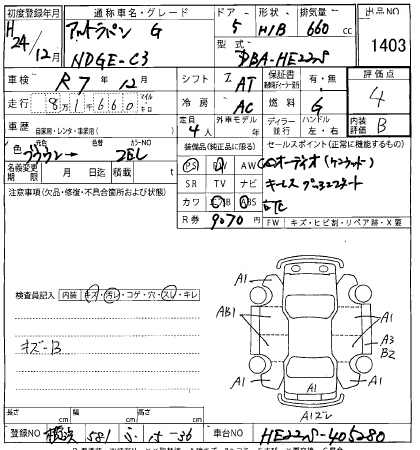 初度登録年月 通称車名・グレード ドア 形状 排気量 出品NO
H24/12月 アルトラパン G 5 H/B 660cc 1403
NDGE-C3 型式 DBA-HE22S
車検 R7年12月 シフト AT 保証書 有・無 評価点
走行 8万1,660 マイル キロ 冷房 AC 燃料 G 4
車歴 自家用・レンタ・事業用( ) 定員 4人 外車モデル 年 ディーラー 並行 ハンドル 左・右 内装評価 B
色 元色 ブラウン → 色替 カラーNO ZEL 装備品(純正に限る) セールスポイント(正常に機能するもの)
名義変更期限 月 日迄 積載 t PS PW AW オーディオ(ケンウッド)
注意事項(欠品・修復・不具合箇所および状態) SR TV ナビ キーレス プッシュスタート
カワ エアB ABS ETC
R券 9070 FW キズ・ヒビ割・リペア跡・X要
検査員記入 内装 キズ・汚レ・コゲ・穴・スレ・キレ
キズ-B
A1 A1
AB1 A1
A3
B2
A1 A1
A1
A1ズレ
長さ cm 幅 cm 高さ cm
登録NO 横浜 581 ふ 15-36 車台NO HE22S-405280